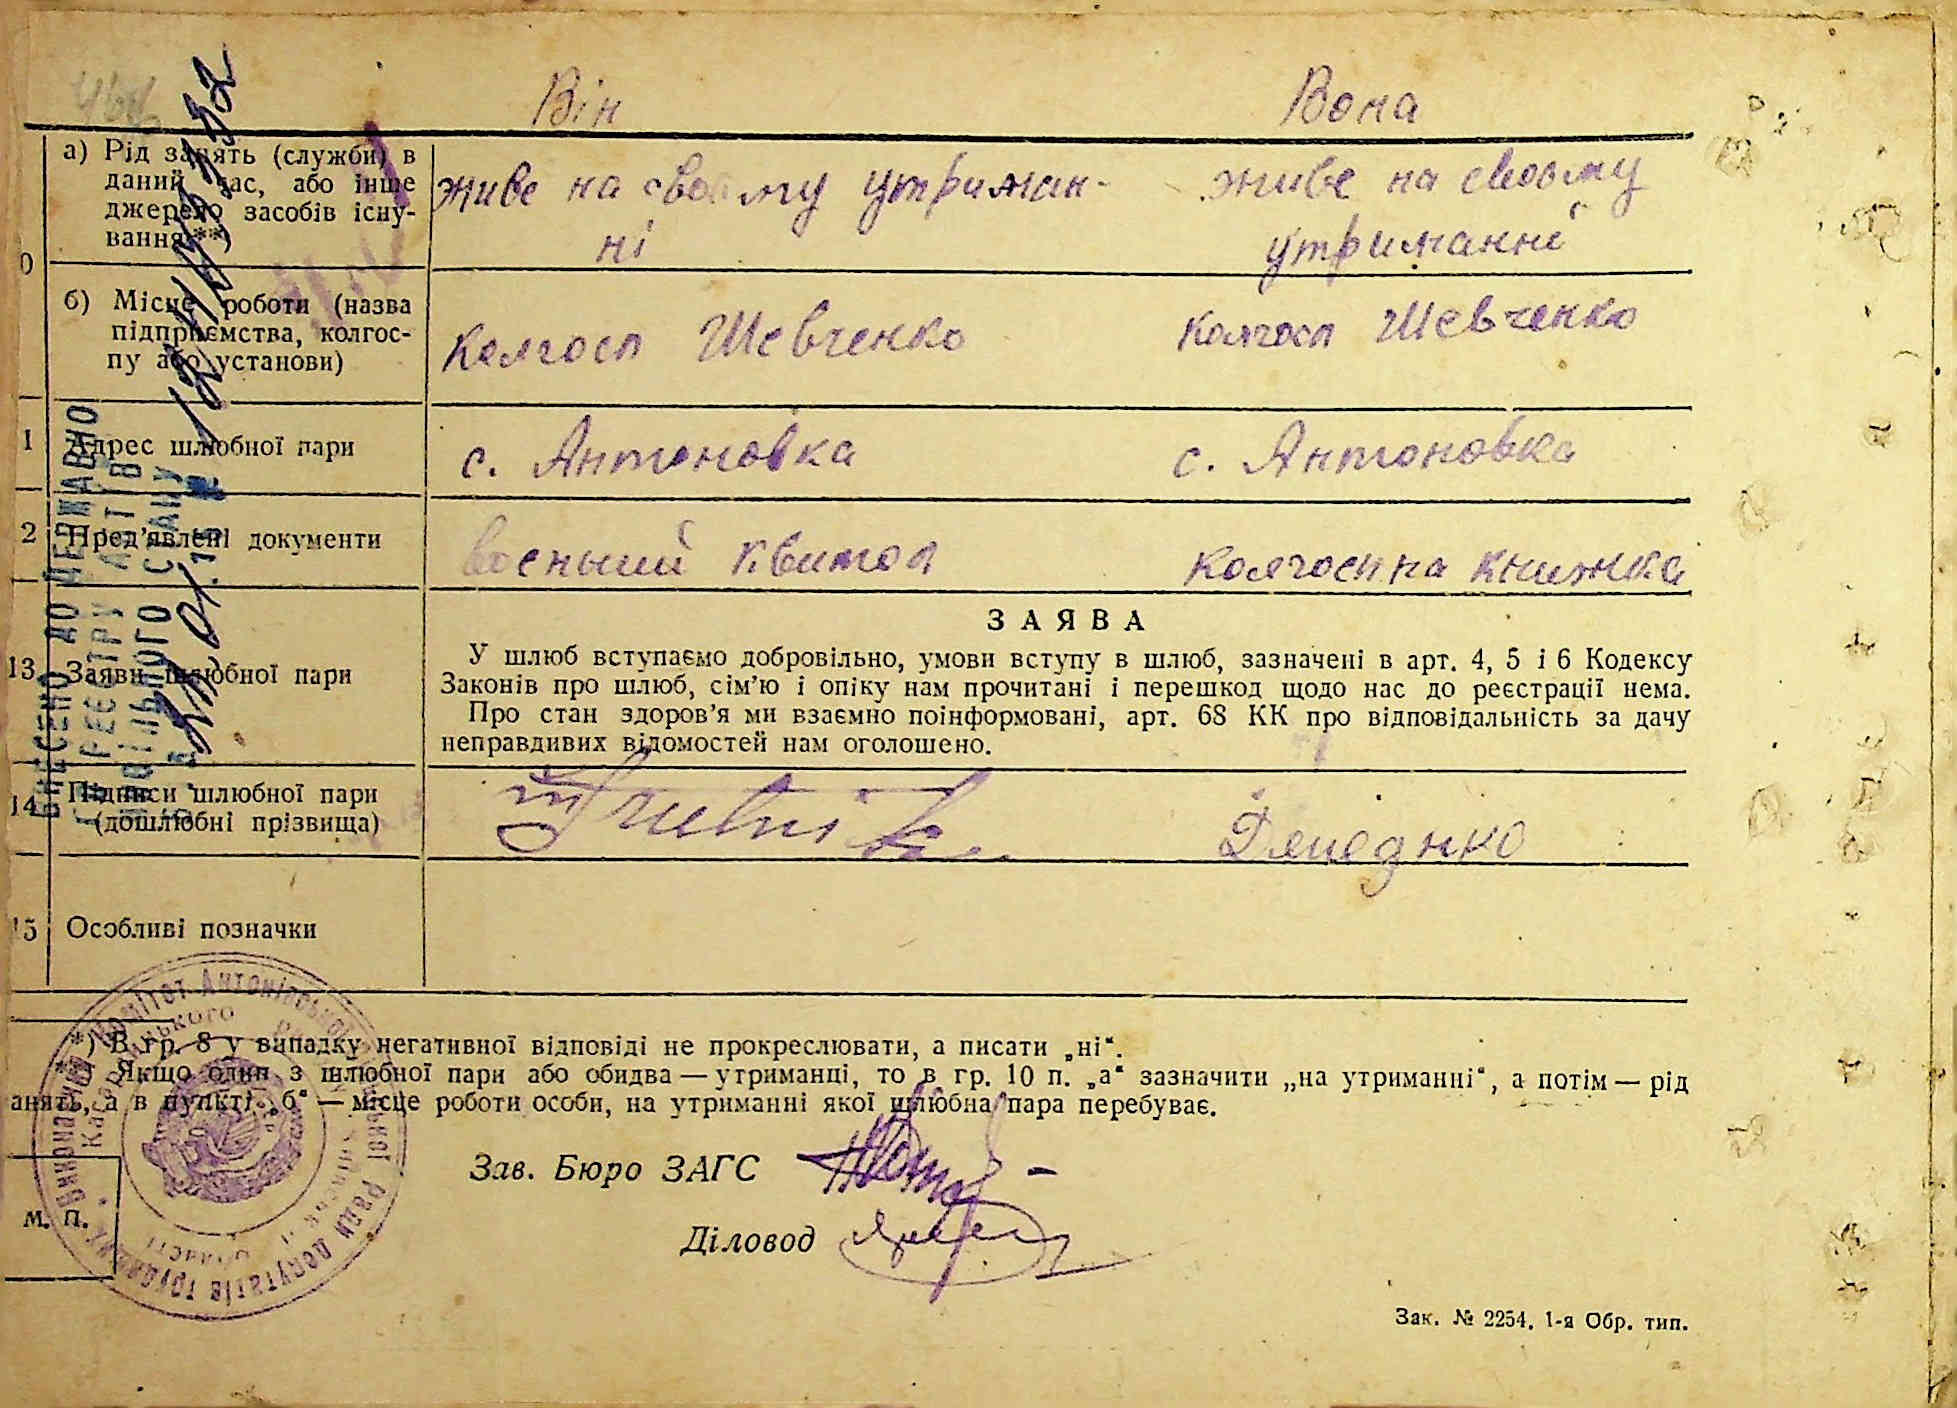 Він Вона
а) Рід занять (служби) в
даний час, або інше
джерело засобів існу-
вання **)
живе на своєму утриман-
ні
живе на своєму
утриманні
б) Місце роботи (назва
підприємства, колгос-
пу або установи)
Колгосп Шевченко
Колгосп Шевченко
1 Адрес шлюбної пари
с. Антоновка
с. Антоновка
2 Пред'явлені документи
военный квитол
колгоспна книжка
13 Заяви шлюбної пари
ЗАЯВА
У шлюб вступаємо добровільно, умови вступу в шлюб, зазначені в арт. 4, 5 і 6 Кодексу
Законів про шлюб, сім'ю і опіку нам прочитані і перешкод щодо нас до реєстрації нема.
Про стан здоров'я ми взаємно поінформовані, арт. 68 КК про відповідальність за дачу
неправдивих відомостей нам оголошено.
14 Підписи шлюбної пари
(дошлюбні прізвища)
15 Особливі позначки
*) В гр. 8 у випадку негативної відповіді не прокреслювати, а писати „ні“.
**) Якщо один з шлюбної пари або обидва — утриманці, то в гр. 10 п. „а“ зазначити „на утриманні“, а потім — рід
анять, а в пункті „б“ — місце роботи особи, на утриманні якої шлюбна пара перебуває.
Зав. Бюро ЗАГС
Діловод
м. п.
Зак. № 2254. 1-я Обр. тип.
ВНЕСЕНО ДО ДЕРЖАВНО
ГО РЕЄСТРУ АКТІВ
ЦИВІЛЬНОГО СТАНУ
Виконавчий комітет Антонівської сільської Ради депутатів трудящих